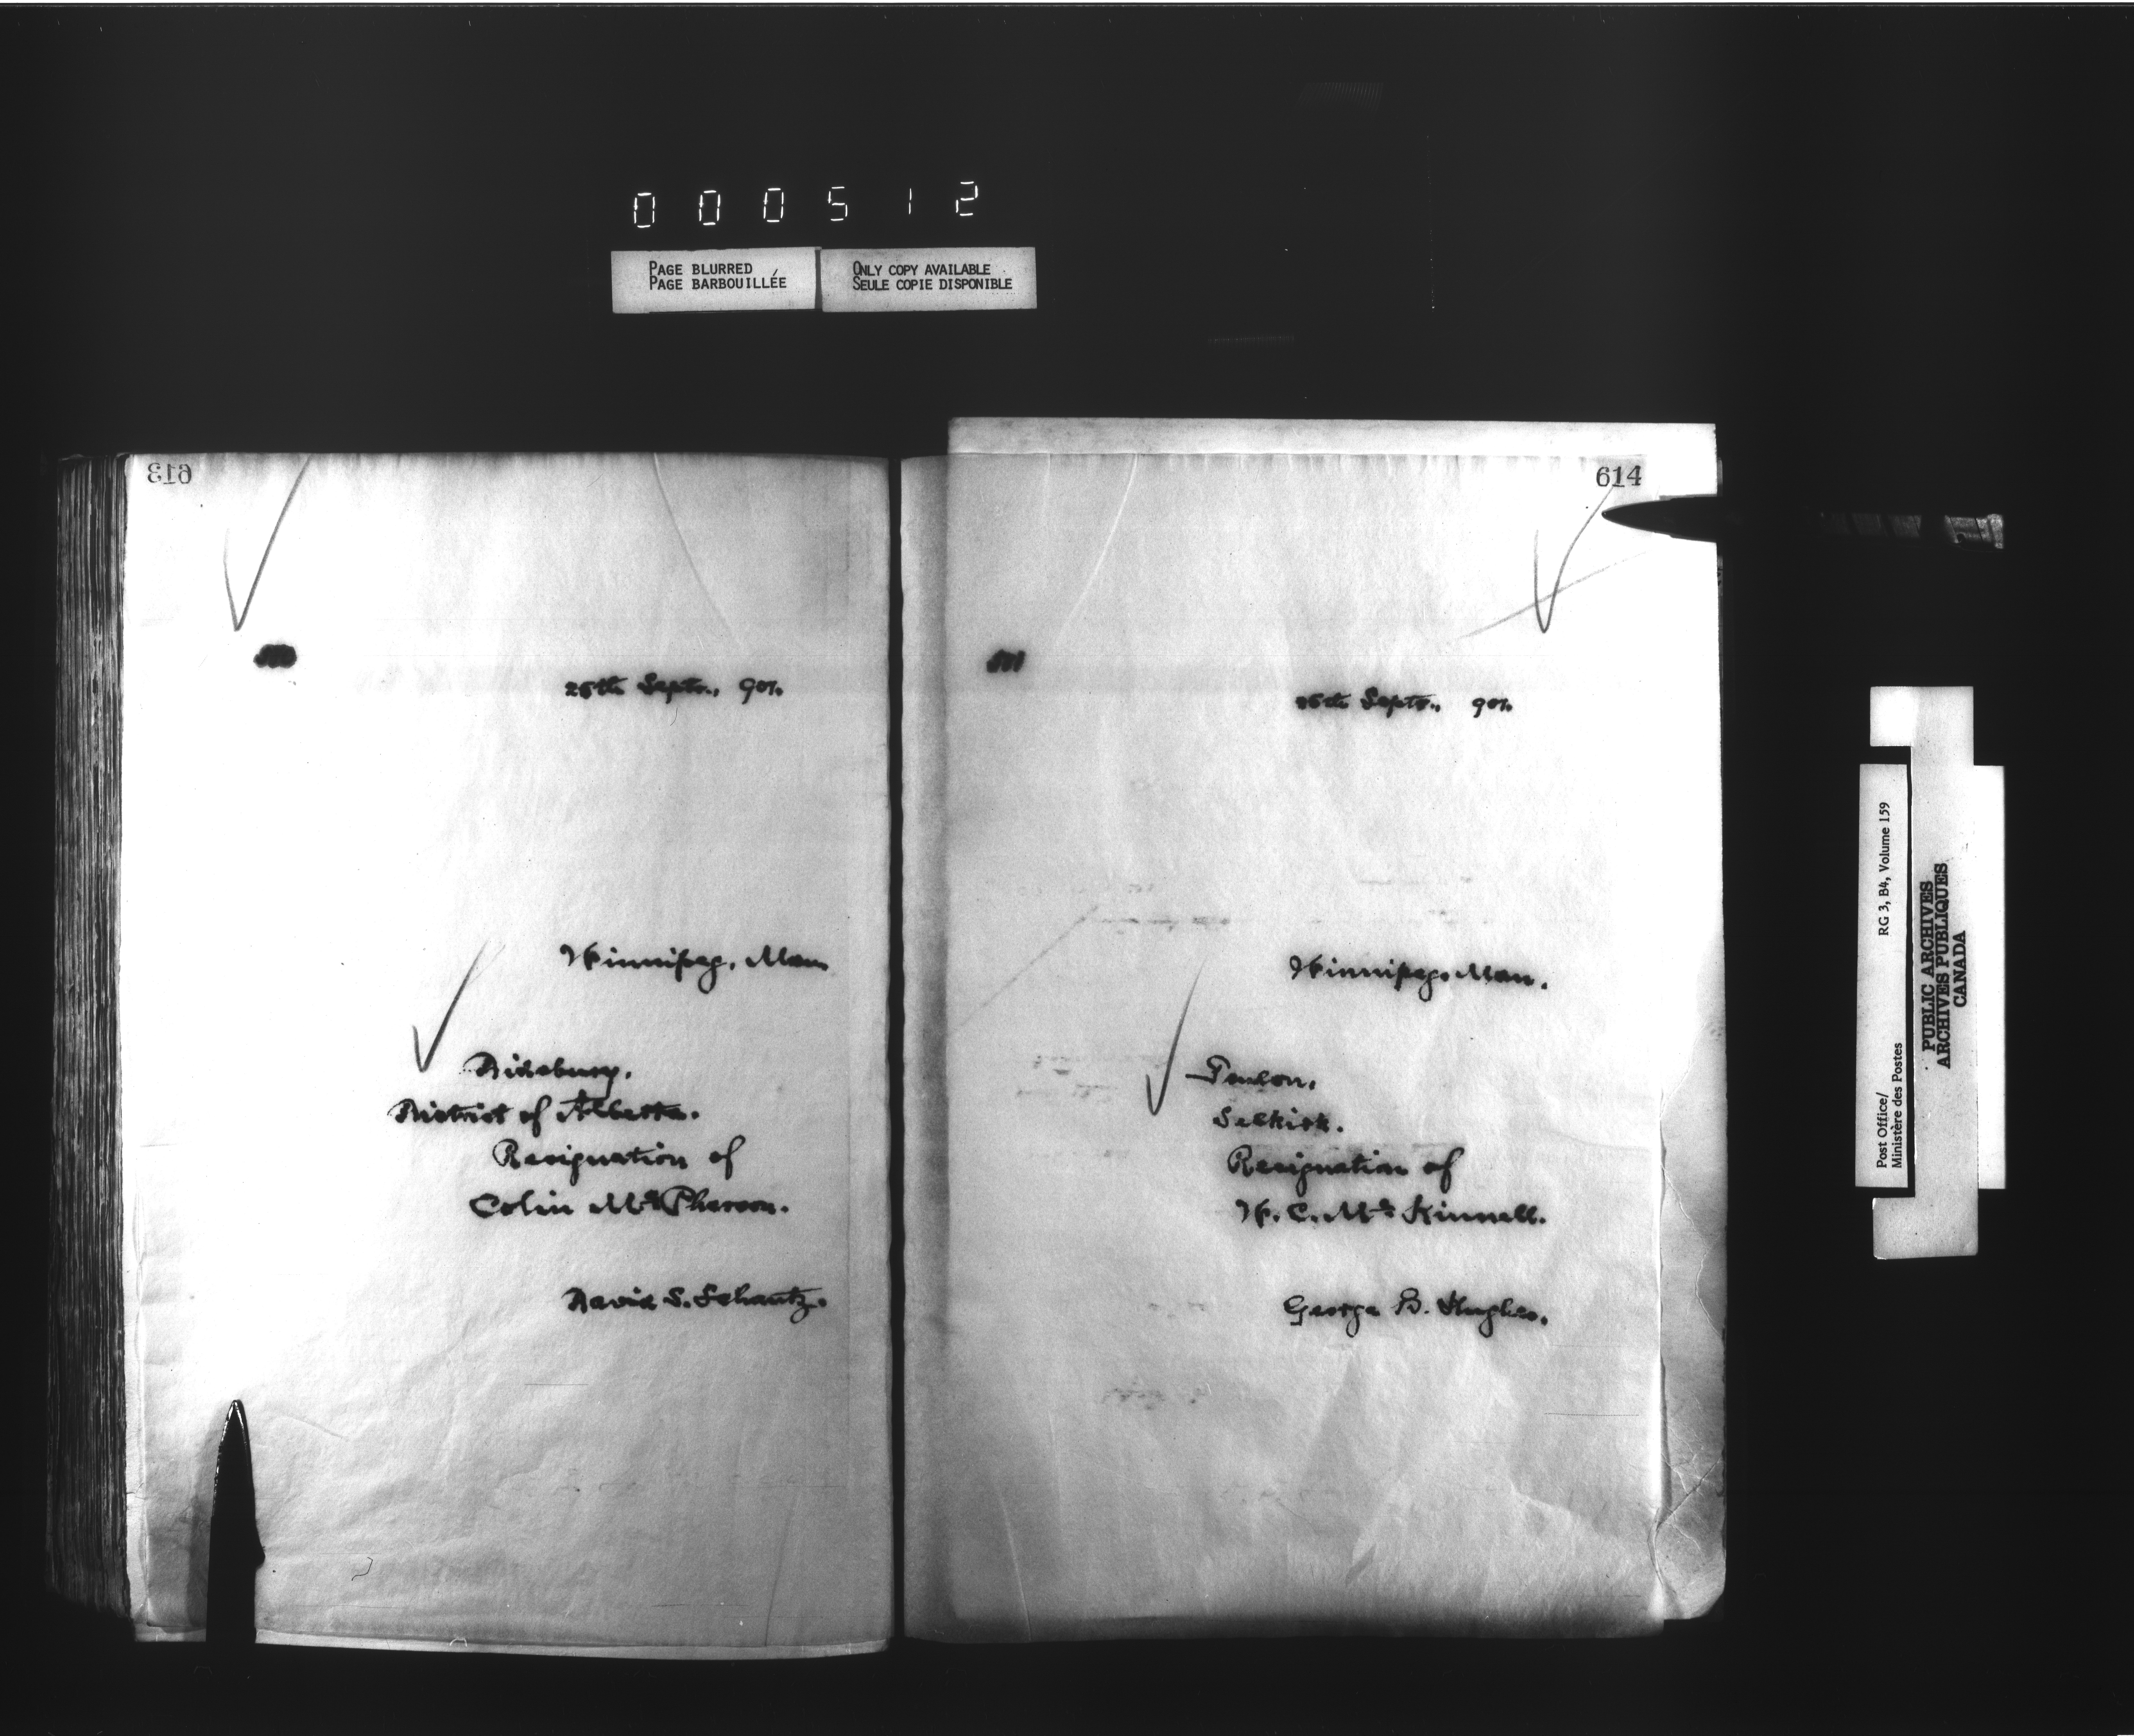 000512
PAGE BLURRED
PAGE BARBOUILLÉE
ONLY COPY AVAILABLE
SEULE COPIE DISPONIBLE
613
25th Septr., 901.
Winnipeg, Man.
Didsbury,
District of Alberta.
Resignation of
Colin McPherson.
David S. Schantz.
614
Septr., 901.
Winnipeg, Man.
Teulon,
Selkirk.
Resignation of
W. C. McKinnell.
George B. Hughes.
Post Office/
Ministère des Postes
RG 3, B4, Volume 159
PUBLIC ARCHIVES
ARCHIVES PUBLIQUES
CANADA